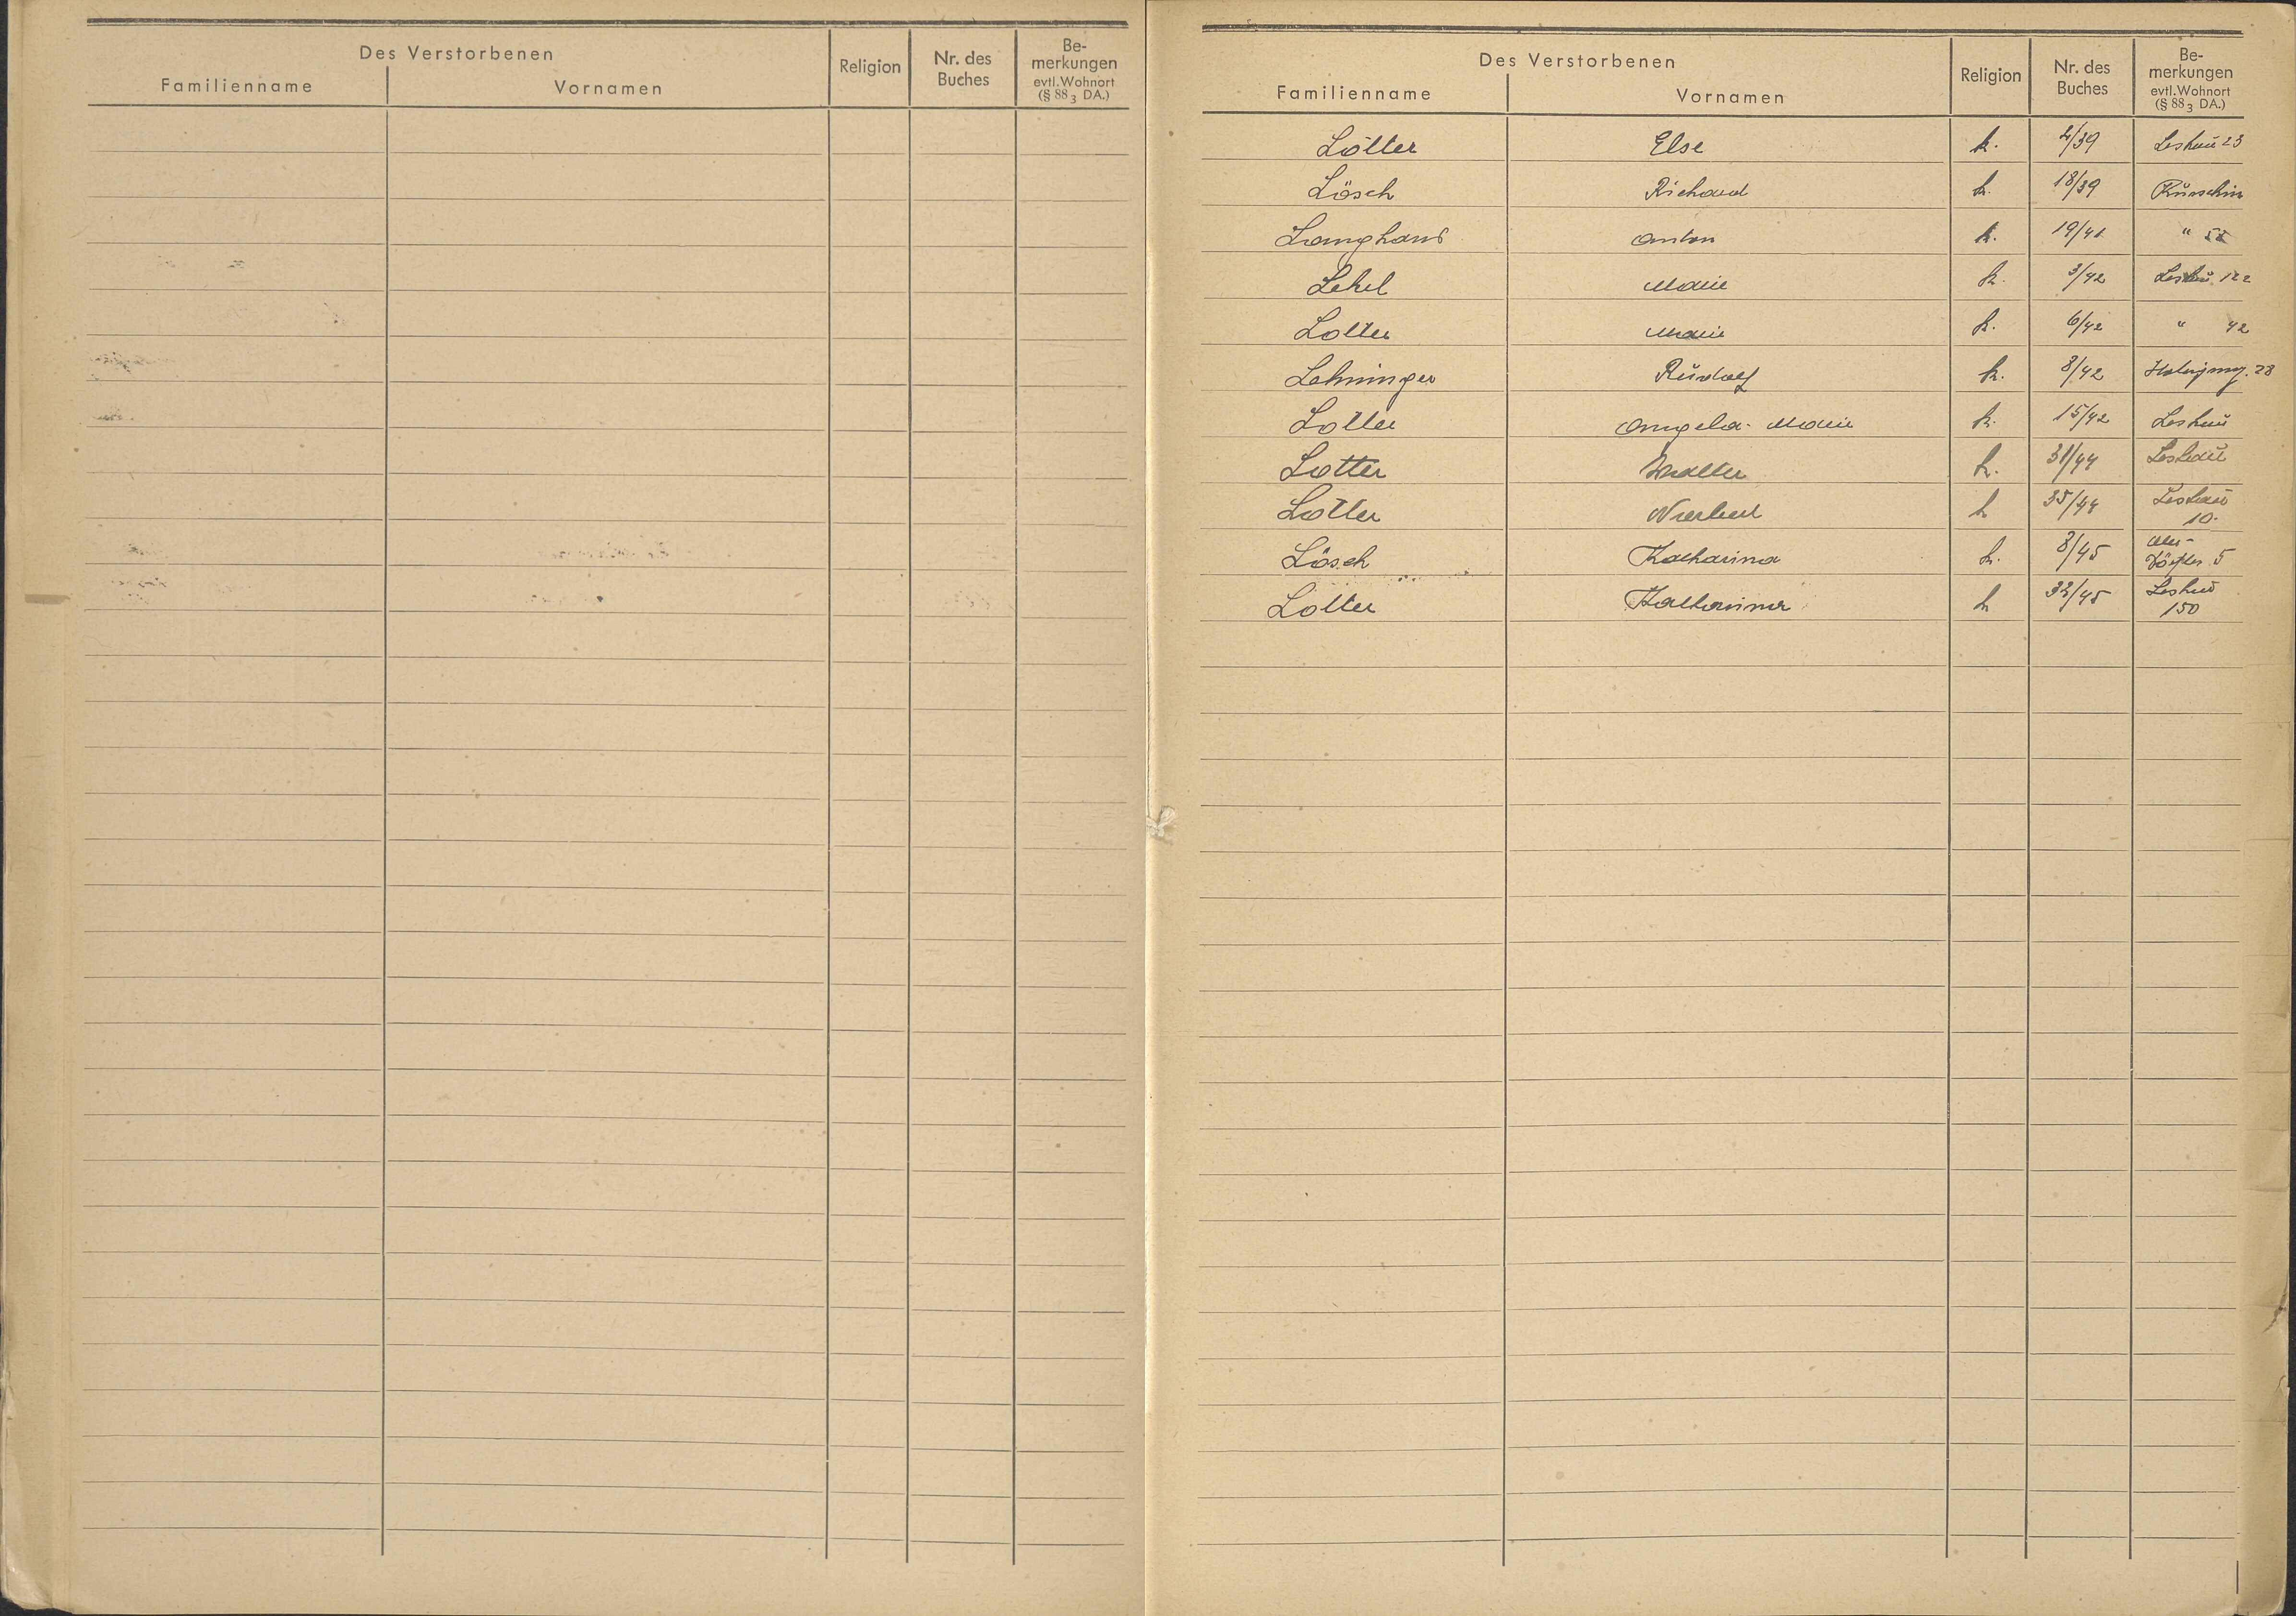 Des Verstorbenen
Familienname Vornamen Religion Nr. des Buches Be-merkungen evtl. Wohnort (§ 88 3 DA.)
Des Verstorbenen
Familienname Vornamen Religion Nr. des Buches Be-merkungen evtl. Wohnort (§ 88 3 DA.)
Lotter Else k. 4/39 Leskau 23
Lösch Richard k. 18/39
Langhans Anton k. 19/41 "
Lehel Marie k. 3/42 Leskau 122
Lotter Marie k. 6/42 " 42
Lehninger Rudolf k. 8/42
Lotter Angela-Marie k. 15/42 Leskau
Lotter Walter k. 31/44 Leskau
Lotter Norbert k 35/44 Leskau 10.
Lösch Katharina k. 8/45 5
Lotter Katharina k 33/45 Leskau 150